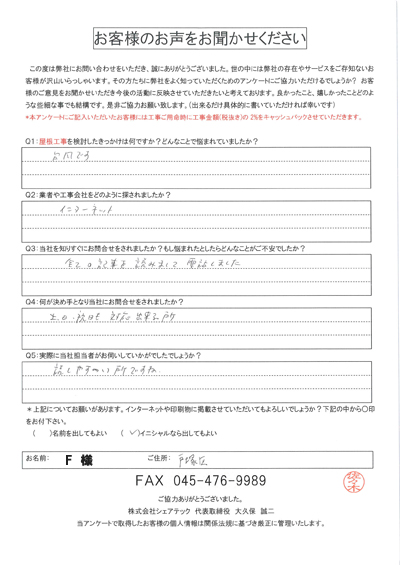 お客様のお声をお聞かせください
この度は弊社にお問い合わせをいただき、誠にありがとうございました。世の中には弊社の存在やサービスをご存知ないお
客様が沢山いらっしゃいます。その方たちに弊社をよく知っていただくためのアンケートにご協力いただけるでしょうか? お客
様のご意見をお聞かせいただき今後の活動に反映させていただきたいと考えております。良かったこと、嬉しかったことどのよ
うな些細な事でも結構です。是非ご協力お願い致します。(出来るだけ具体的に書いていただければ幸いです)
*本アンケートにご記入いただいたお客様には工事ご用命時に工事金額(税抜き)の 2%をキャッシュバックさせていただきます。
Q1:屋根工事を検討したきっかけは何ですか?どんなことで悩まれていましたか?
台風です
Q2:業者や工事会社をどのように探されましたか?
インターネット
Q3:当社を知りすぐにお問合せをされましたか?もし悩まれたとしたらどんなことがご不安でしたか?
全ての記事を読みまして 電話しました
Q4:何が決め手となり当社にお問合せをされましたか?
土.日.祝日も 対応 出来る所
Q5:実際に当社担当者がお伺いしていかがでしたでしょうか?
話しやすい所ですね
＊上記についてお願いがあります。インターネットや印刷物に掲載させていただいてもよろしいでしょうか?下記の中から〇印
をお付下さい。
( )名前を出してもよい ( ✓)イニシャルなら出してもよい
お名前: F 様 ご住所: 戸塚区
FAX 045-476-9989
ご協力ありがとうございました。
株式会社シェアテック 代表取締役 大久保 誠二
当アンケートで取得したお客様の個人情報は関係法規に基づき厳正に管理いたします。
佐々木